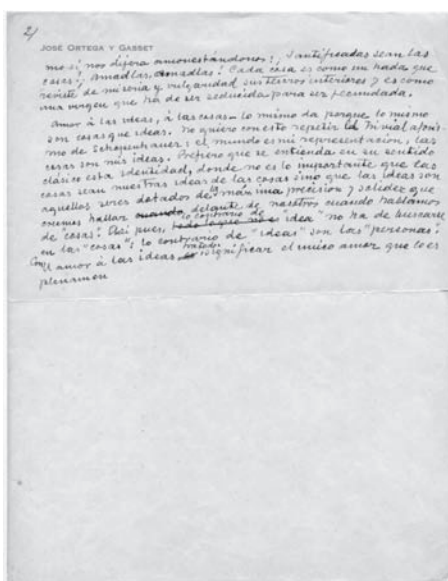 2/
JOSÉ ORTEGA Y GASSET
mo si nos dijera amonestándonos: ¡Santificadas sean las
cosas! ¡Amadlas, amadlas! Cada cosa es como un hada que
reviste de miseria y vulgaridad sus tesoros interiores y es como
una virgen que ha de ser seducida para ser fecundada.
Amor á las ideas, á las cosas— lo mismo da porque lo mismo
son cosas que ideas. No quiero con esto repetir el trivial aforis-
mo de Schopenhauer: el mundo es mi representación, las
cosas son mis ideas. Prefiero que se entienda en su sentido
clásico esta identidad, donde no es lo importante que las
cosas sean nuestras ideas de las cosas sino que las ideas son
aquellos seres dotados de la máxima precisión y solidez que
creemos hallar cuando delante de nosotros cuando hablamos
de "cosas". Así pues, lo contrario de "idea" no ha de buscarse
en las "cosas": lo contrario de "ideas" son las "personas".
Con el amor á las ideas trato de significar el único amor que lo es
plenamen